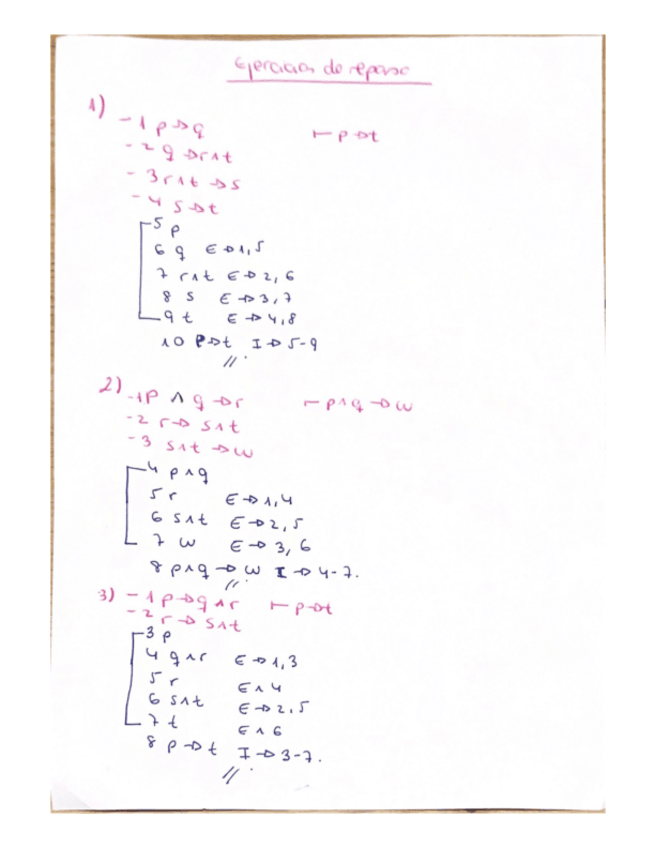 Ejercicios de repaso
1)
- 1 p → q ⊢ p → t
- 2 q → r ∧ t
- 3 r ∧ t → s
- 4 s → t
5 p
6 q E → 1, 5
7 r ∧ t E → 2, 6
8 s E → 3, 7
9 t E → 4, 8
10 p → t I → 5-9
2)
- 1 p ∧ q → r ⊢ p ∧ q → w
- 2 r → s ∧ t
- 3 s ∧ t → w
4 p ∧ q
5 r E → 1, 4
6 s ∧ t E → 2, 5
7 w E → 3, 6
8 p ∧ q → w I → 4-7.
3) - 1 p → q ∧ r ⊢ p → t
- 2 r → s ∧ t
3 p
4 q ∧ r E → 1, 3
5 r E ∧ 4
6 s ∧ t E → 2, 5
7 t E ∧ 6
8 p → t I → 3-7.